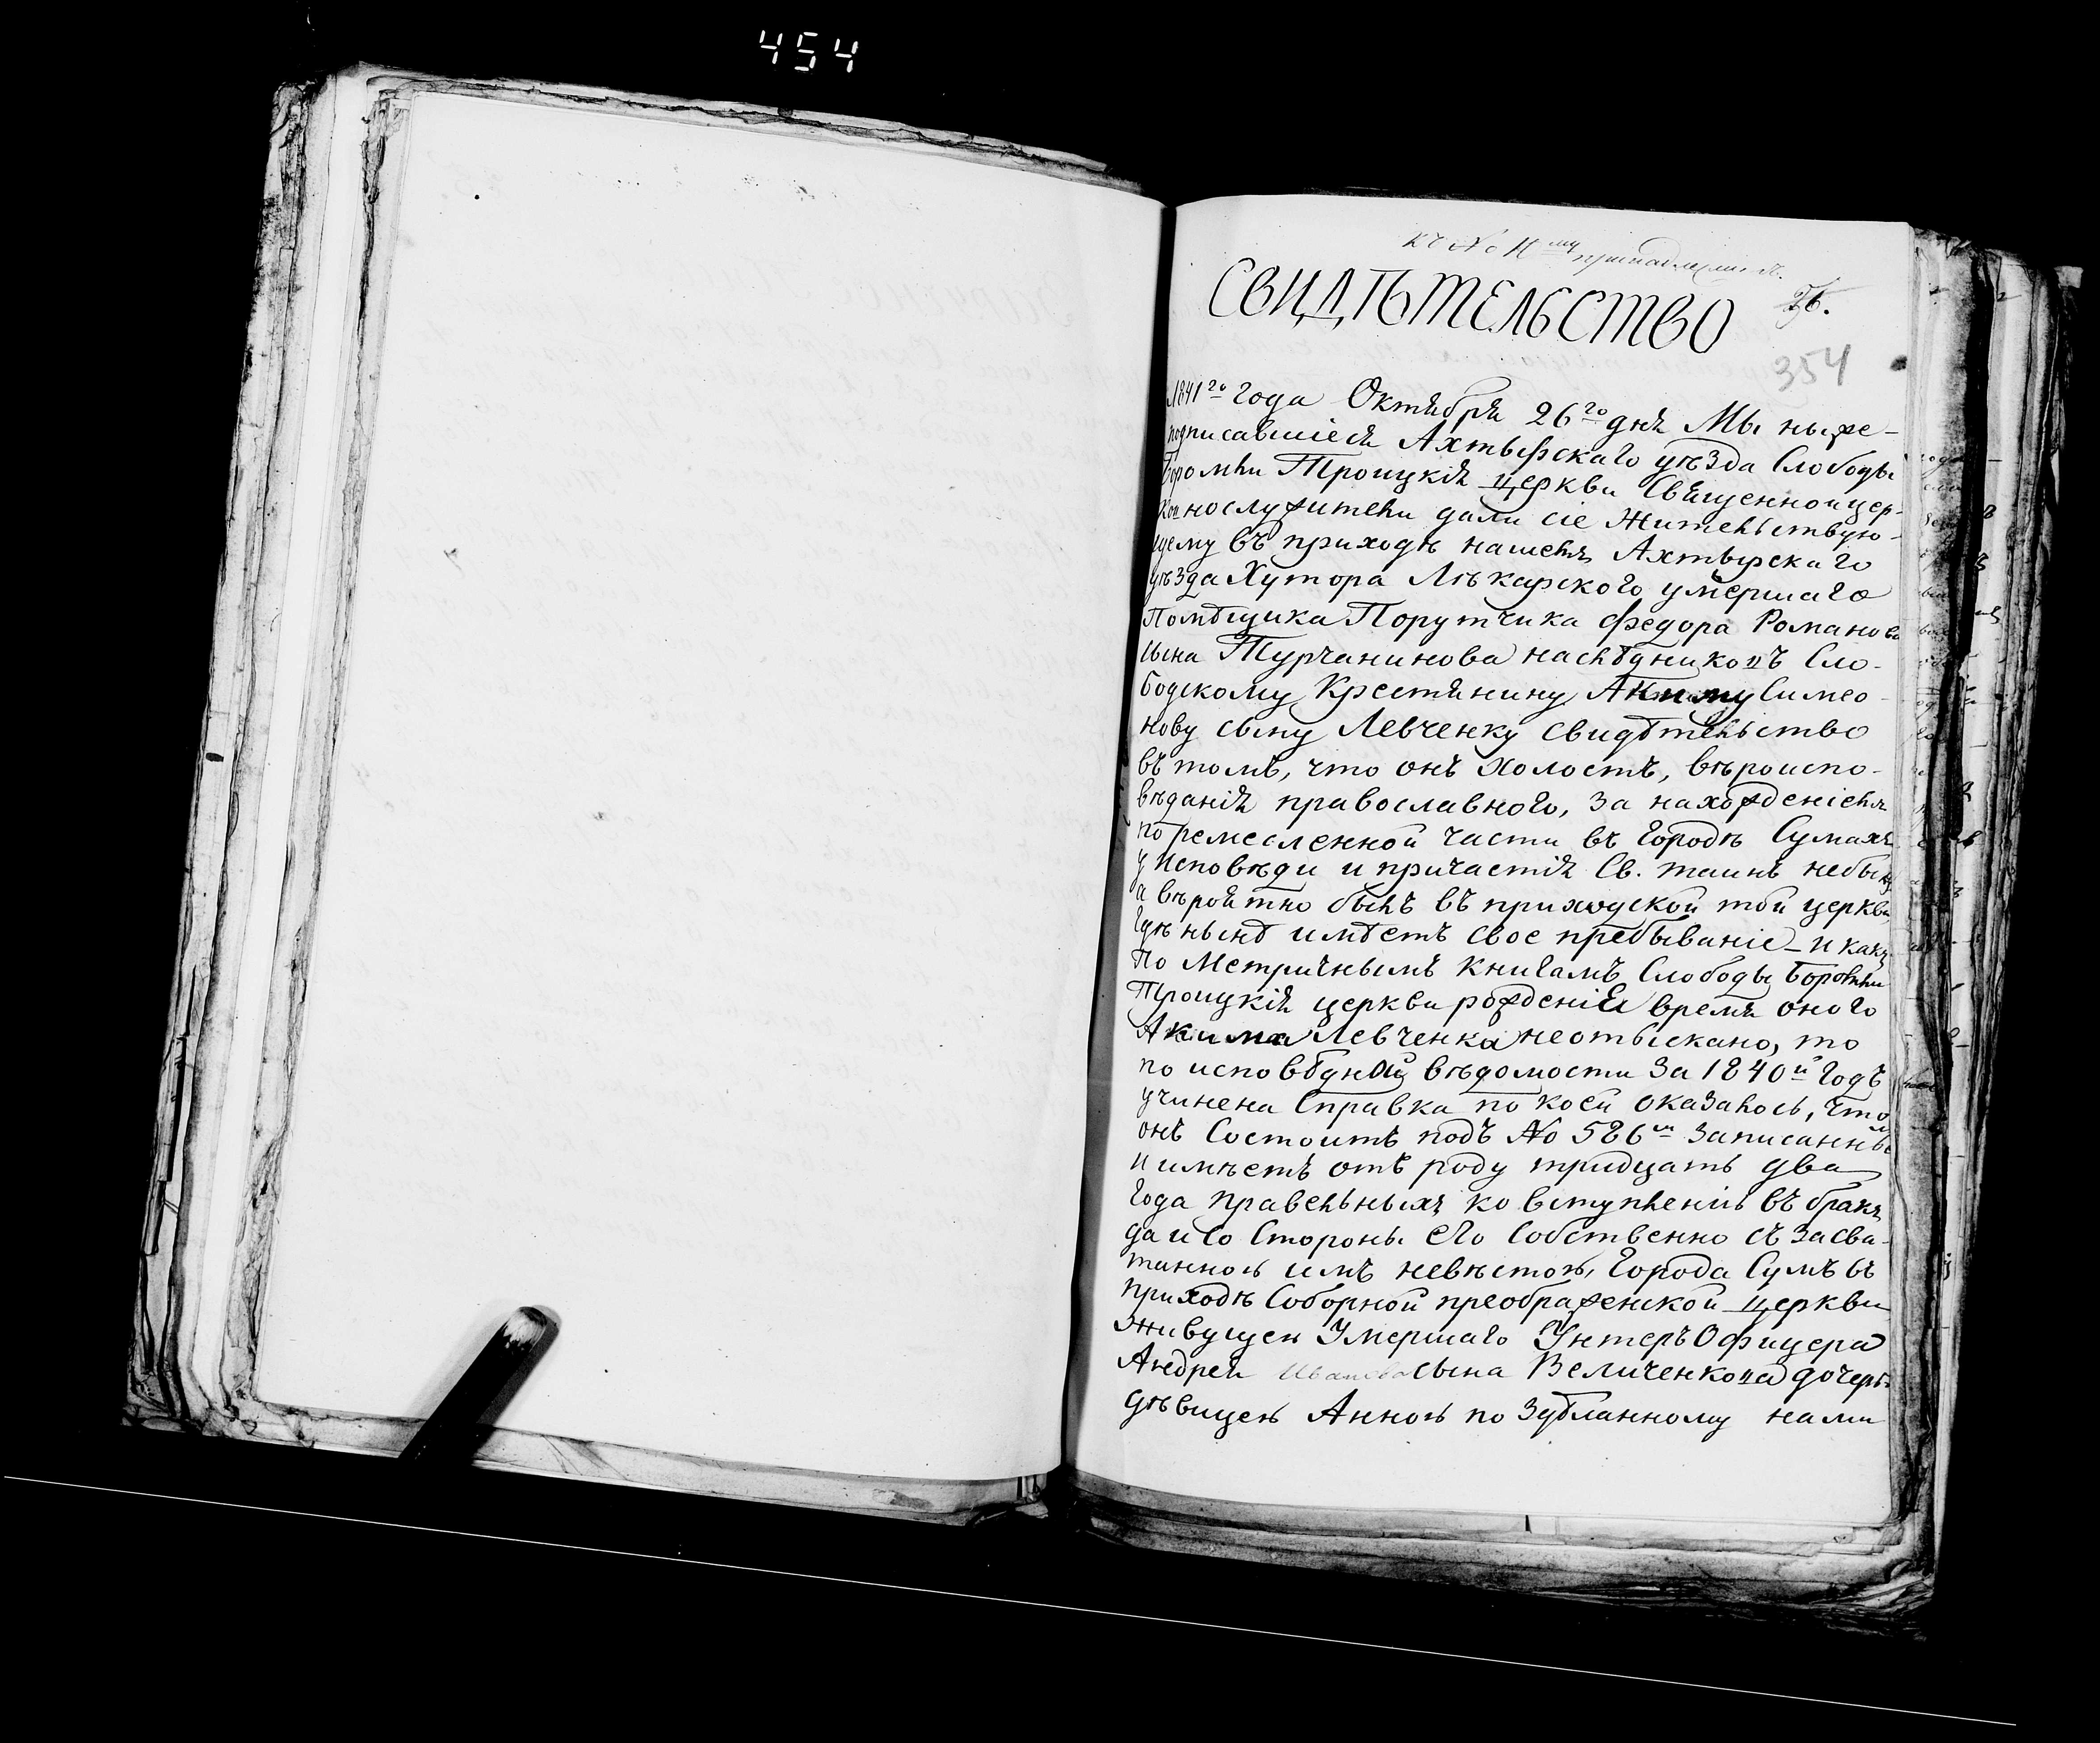 454
къ № 11му принадлежитъ.
СВИДѢТЕЛЬСТВО
26.
354
1841го года Октября 26го дня Мы ниже-
подписавшіеся Ахтырскаго уѣзда Слободы
Боромли Троицкія церкви Священноицер-
ковнослужители дали сіе Жительствую-
щему въ приходѣ нашемъ Ахтырскаго
уѣзда Хутора Лѣкарского умершаго
Помѣщика Порутчика Федора Романова
сына Турчанинова наслѣдниковъ Сло-
бодскому Крестянину Акиму Симео-
нову сыну Левченку свидѣтельство
въ томъ, что онъ холостъ, вѣроиспо-
вѣданія православного, за нахожденіемъ
по ремесленной части въ Городѣ Сумахъ
у Исповѣди и причастія Св. таинъ небылъ
а вѣроятно былъ въ приходской той церкви,
гдѣ нынѣ имѣетъ свое пребываніе - И какъ
по Метричнымъ Книгамъ Слободы Боромли
Троицкія церкви рожденія время оного
Акима Левченка неотыскано, то
по исповѣдной вѣдомости за 1840й Годъ
учинена Справка по коей оказалось, что
онъ Состоитъ подъ № 586м записаннымъ
и имѣетъ отъ роду тридцать два
Года правельныхъ ко вступленію въ бракъ
да и Со Стороны его Собственно съ засва-
танною имъ невѣстою, Города Сумъ въ
приходѣ Соборной преображенской церкви
Живущею Умершаго Унтеръ Офицера
Андрея Иванова сына Величенкова дочерью
дѣвицею Анною по здѣланному нами